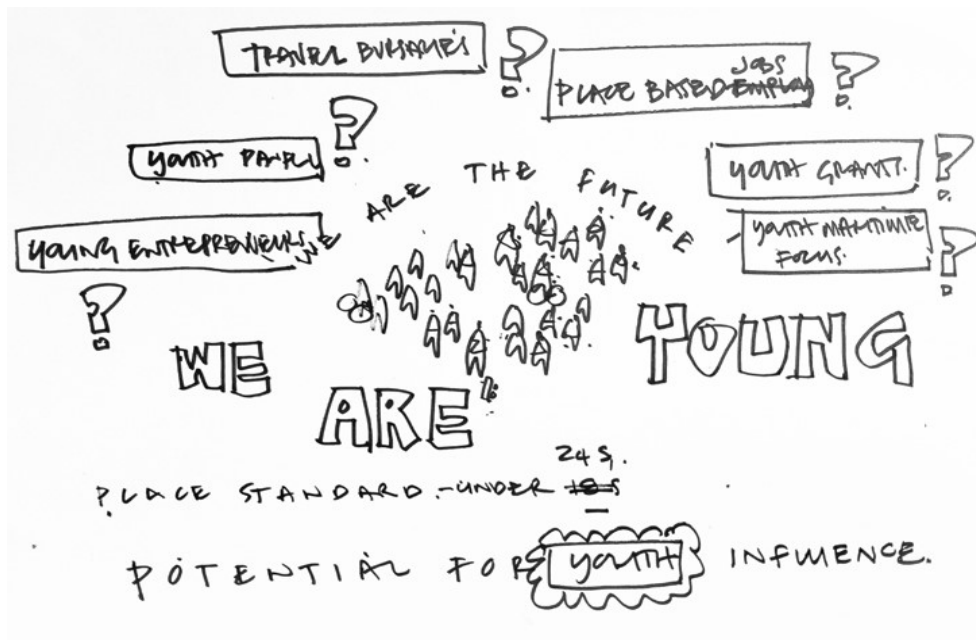 TRAVEL BURSARIES ?
JOBS ?
PLACE BASED EMPLOY
YOUTH PANEL ?
YOUTH GRANTS. ?
YOUNG ENTREPRENEURS ?
YOUTH MARITIME ?
FOCUS.
WE ARE THE FUTURE
WE ARE YOUNG
24 S.
PLACE STANDARD.-UNDER 18 S
POTENTIAL FOR YOUTH INFLUENCE.